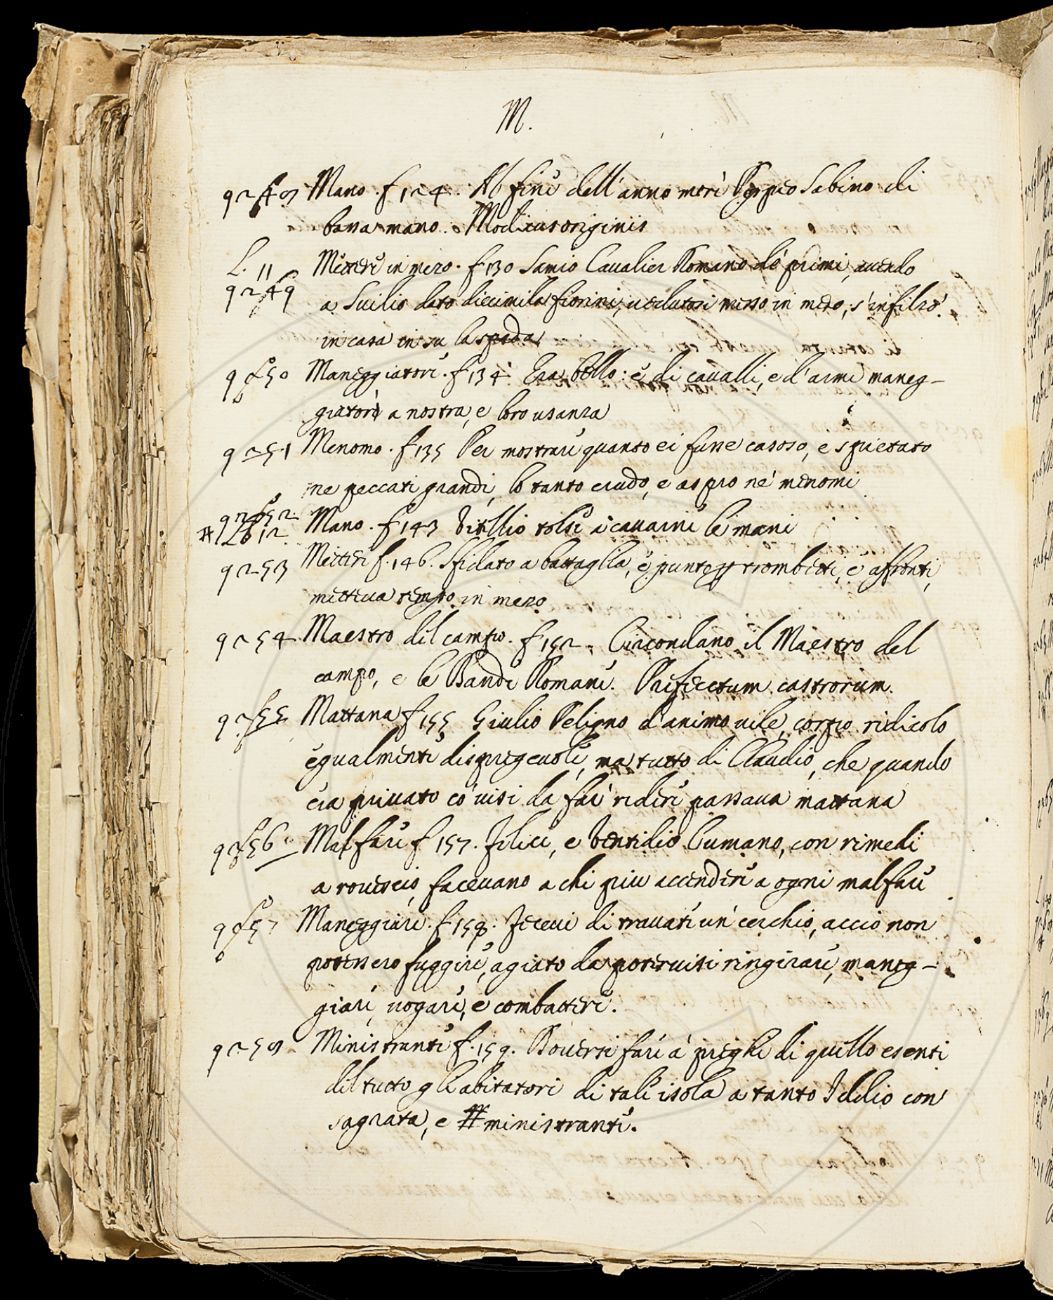 M.
9248 Mano. f 124. Al fine dell'anno morì Poppeo Sabino di
bassa mano. Modicus originis
L. 11
9249 Mettere in mezo. f 130 Samio Cavalier Romano de' primi, avendo
a Suilio dato diecimila fiorini, e vedutosi messo in mezo, s'infilzò
in casa in su la spada
9250 Maneggiatori. f 134. Era bello: e di cavalli, e d'armi maneg-
giatori a nostra, e loro usanza
9251 Menomo. f 135 Per mostrare quanto ei fusse casoso, e spietato
ne peccati grandi, lo tanto crudo, e aspro ne' menomi
9252
L. 12 Mano. f 143 Vitellio tolse a cavarne le mani
9253 Mettere f. 146. Sfidato a battaglia, e punto trombetti, e affronti,
metteva tempo in mezo
9254 Maestro del campo. f 152. Circondano il Maestro del
campo, e le Bande Romane. Praefectum castrorum.
9255 Mattana f 155 Giulio Peligno d'animo vile, corpo ridicolo
egualmente dispregevole, ma tutto di Claudio, che quando
era privato co' visi da far ridere passava mattana
9256 Mal fare f 157. Felice, e Ventidio Cumano, con rimedi
a rovescio facevano a chi piu accendere a ogni mal fare
9257 Maneggiare. f 158. Fecevi di travate un cerchio, accio non
potessero fuggire, agiato da potervisi ringirare, maneg-
giare, vogare, e combattere.
9258 Ministrante f. 159. Doversi fare a' prieghi di quello esenti
del tutto gli abitatori di tale isola a tanto Iddio con
sagrata, e ministrante.